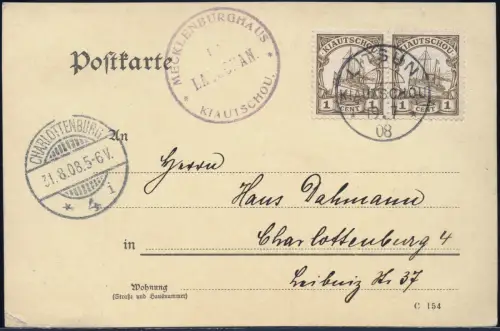 MECKLENBURGHAUS
KIAUTSCHOU.
KIAUTSCHOU KIAUTSCHOU
1 CENT 1 CENT
KIAUTSCHOU
08
Postkarte
CHARLOTTENBURG
31.8.08.5-6V.
* 4 i
An
Herrn
Hans Dahmann
in Charlottenburg 4
Leibniz Str 37
Wohnung
(Straße und Hausnummer)
C 154